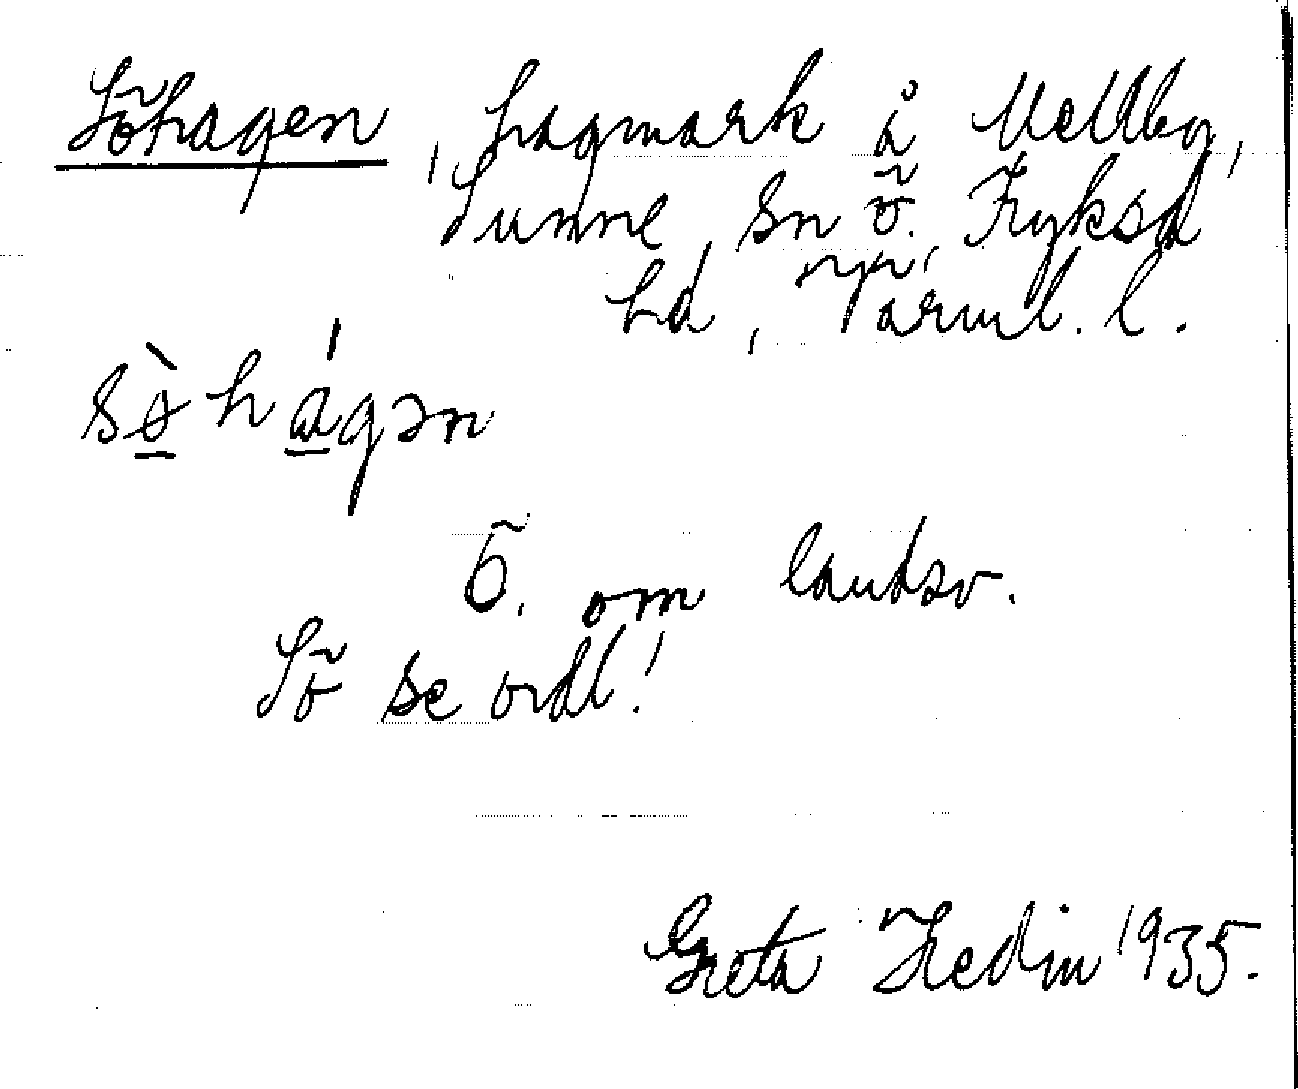 Söhagen, hagmark å Mellby,
Sunne sn ö. Fryksd
hd, Värml. l.
sø̀hágən
Ö. om landsv.
Sö se ordl!
Greta Hedin 1935.